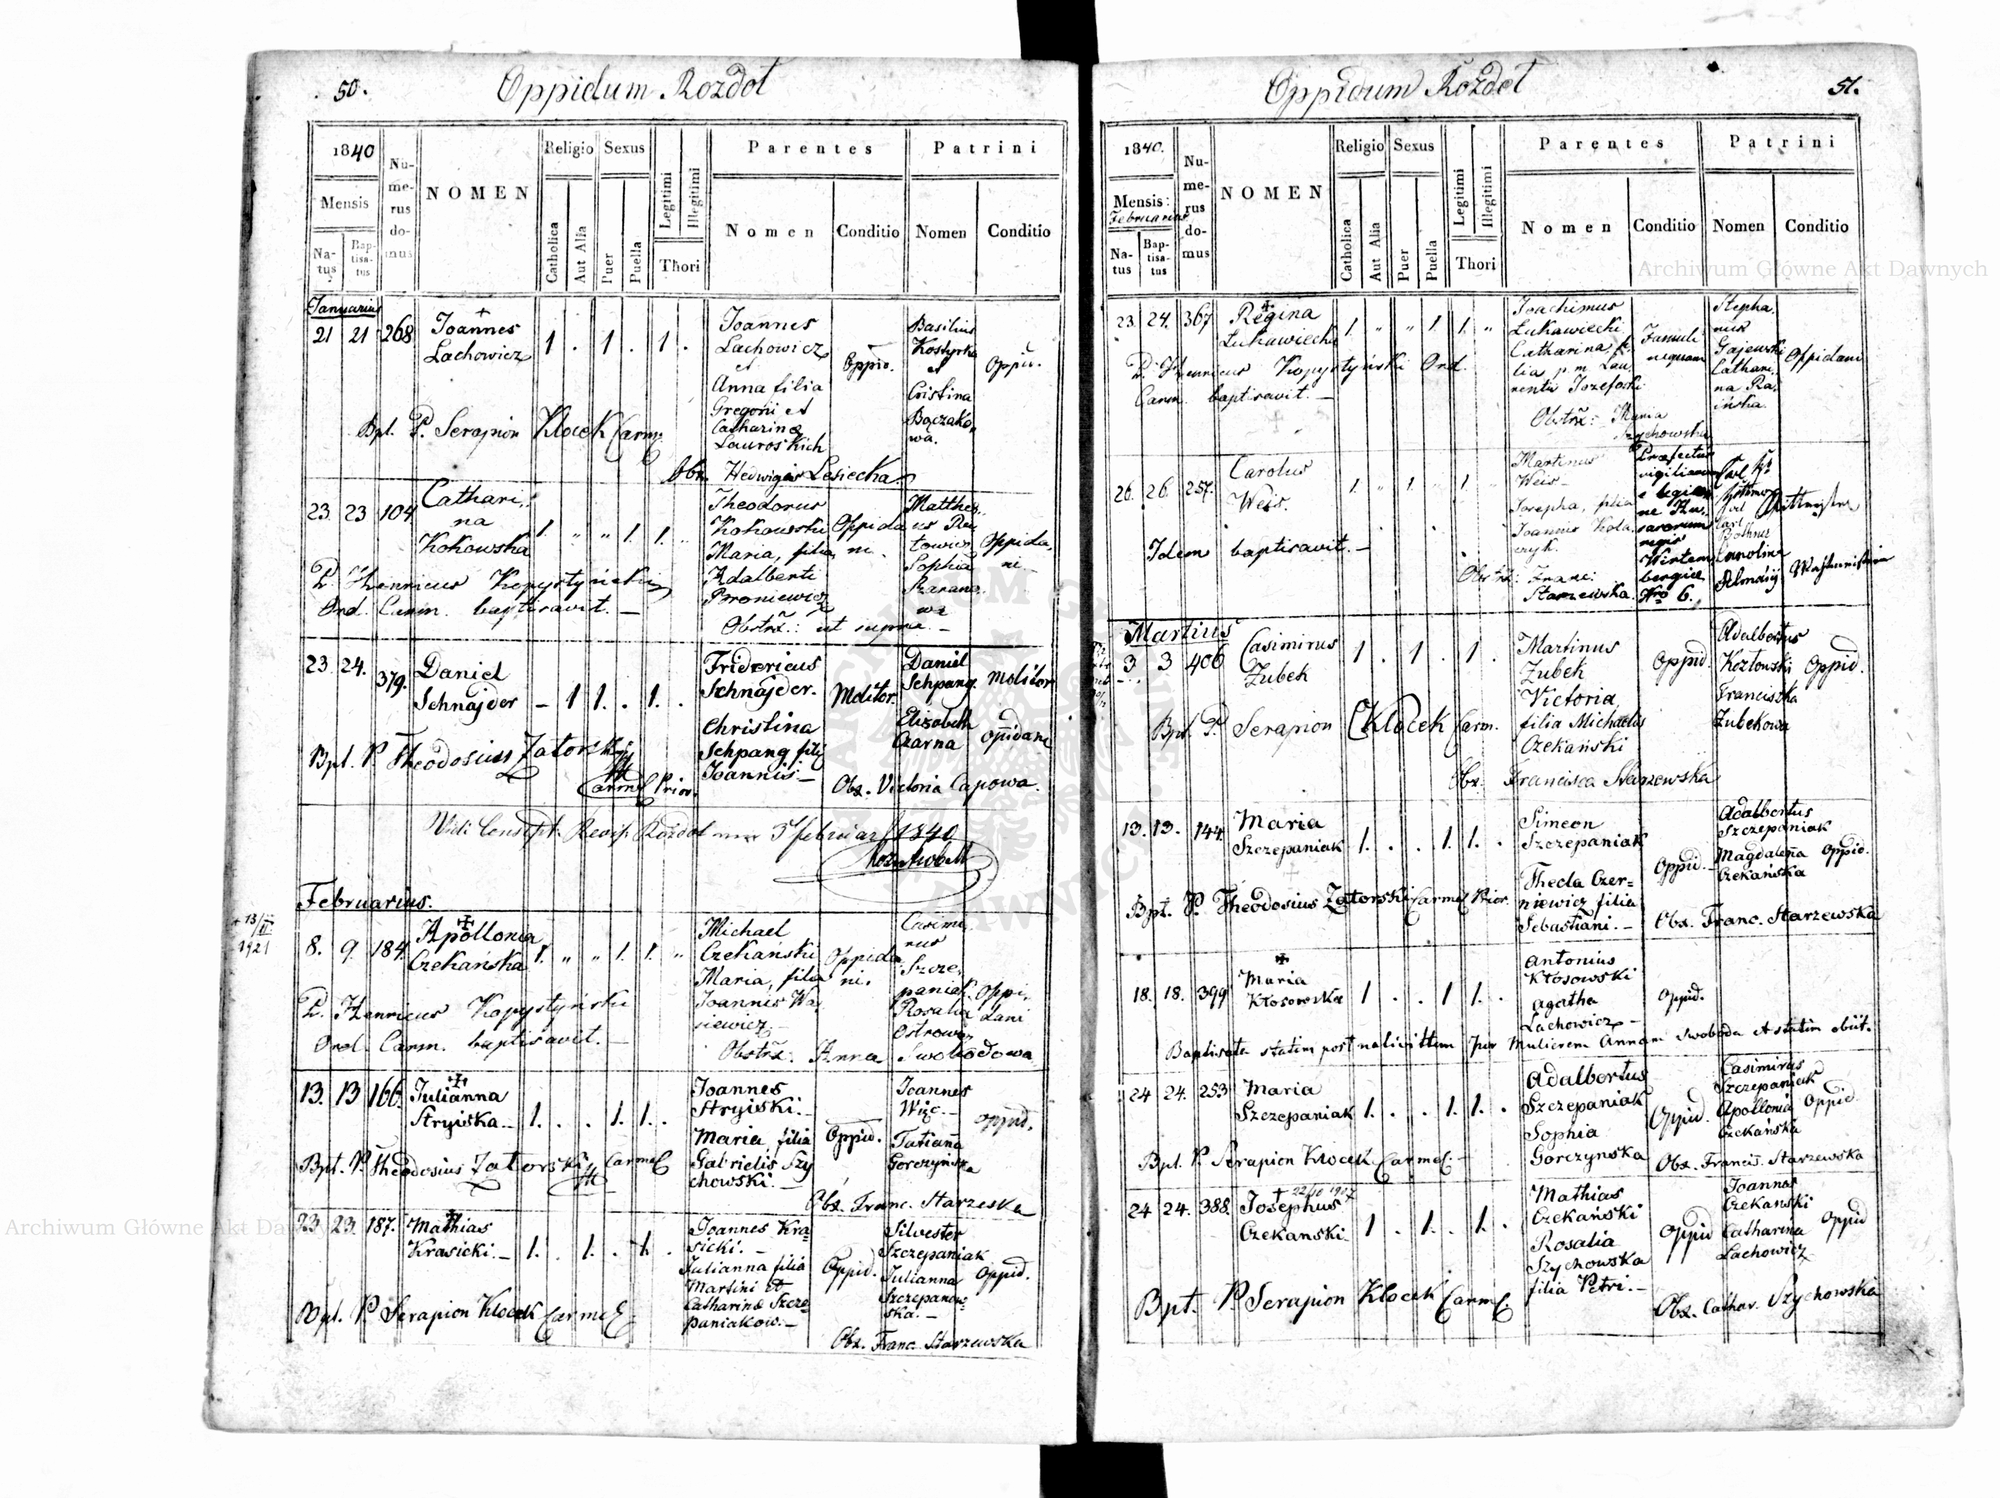 50. Oppidum Rozdoł
1840
Mensis
Natus
Baptisatus
Numerus domus
NOMEN
Religio
Catholica
Aut Alia
Sexus
Puer
Puella
Legitimi
Illegitimi
Thori
Parentes
Nomen
Conditio
Patrini
Nomen
Conditio
Januarius
21 21 268 Joannes Lachowicz 1 . 1 . 1 .
Joannes
Lachowicz
et
Anna filia
Gregorii et
Catharinæ
Lauroskich
Oppid.
Basilius
Kostyrka
et
Cristina
Bączako-
wa.
Oppid.
Bpt. P. Serapion Klocek Carm.
Obs. Hedwigis Lesiecka
23 23 104 Cathari-
na
Kokowska 1. " " 1. 1. "
Theodorus
Kokowski
Maria, filia
Adalberti
Broniewicz
Oppida
ni.
Matthe-
us
Sophia
Oppida
ni
P. Henricus Kopystyński
Ord. Carm. baptisavit. —
Obstrx.: ut supra. —
23. 24. 379. Daniel
Schnajder — 1 1. . 1. .
Fridericus
Schnajder.
Christina
Schpang filia
Joannis. —
Molitor.
Daniel
Schpang
Elisabeth
Czarna
Molitor
Opidana
Bpt. P. Theodosius Zatorski
Carmel Prior.
Obs. Victoria Capowa.
Februarius.
+ 13/II
1921
8. 9. 184 Apollonia
Czekańska 1. " " 1. 1. "
Michael
Czekański
Maria, filia
Joannis Wa-
siewicz. —
Oppida
ni.
Casimi-
rus
Szcze-
paniak
Rosalia
Ostrow-
Oppi-
dani
P. Henricus Kopystyński
Ord. Carm. baptisavit. —
Obstrx. Anna Swobodowa
13. 13 166. Julianna
Stryiska. — 1. . . 1. 1. .
Joannes
Stryiski. —
Maria filia
Gabrielis Szy
chowski. —
Oppid.
Joannes
Więc. —
Tatiana
Gorczyńska
Oppid.
Bpt. P. Theodosius Zatorski Carmel
Obs. Franc. Starzeska
23. 23. 187. Mathias
Krasicki. — 1. . 1. . 1. .
Joannes Kra-
sicki. —
Julianna filia
Martini et
Catharinæ Szcze-
paniakow. —
Oppid.
Silvester
Szczepaniak
Julianna
Szczepanow-
ska. —
Oppid.
Bpt. P. Serapion Klocek Carmel
Obs. Franc. Starzewska
Oppidum Rozdoł 51.
1840.
Mensis:
Februarius
Natus
Baptisatus
Numerus domus
NOMEN
Religio
Catholica
Aut Alia
Sexus
Puer
Puella
Legitimi
Illegitimi
Thori
Parentes
Nomen
Conditio
Patrini
Nomen
Conditio
23. 24. 367 Regina
Łukawiecka 1. " " 1. 1. "
Joachimus
Łukawiecki
Catharina, fi-
lia p.m. Lau-
rentii Jozefocki
Famuli
nequam
Stepha-
nus
Gajewski
Cathari-
na Ra-
ińska.
Oppidani
P. Henricus Kopystyński Ord.
Carm. baptisavit. —
Obstrx: Maria
Szychowska
26. 26. 257. Carolus
Weis. 1. " 1. " 1. "
Martinus
Weis
Josepha, filia
Joannis Kola-
czyk.
Præfectus
vigiliarum
e legio-
ne
regis
Wirtem-
bergiæ
Nro 6.
Carl
Carolina
Idem baptisavit. —
Obstrx: Franc:
Starzewska.
Martius
3 3 406 Casimirus
Zubek 1 . 1 . 1 .
Martinus
Zubek
Victoria
filia Michaelis
Czekański
Oppid.
Adalbertus
Kozłowski
Franciszka
Zubekowa
Oppid.
Bpt. P. Serapion Klocek Carm.
Obs. Francisca Starzewska
13. 13. 144 Maria
Szczepaniak 1. . . 1. 1. .
Simeon
Szczepaniak
Thecla Czer-
niewicz filia
Sebastiani. —
Oppid.
Adalbertus
Szczepaniak
Magdalena
Czekańska
Oppid.
Bpt. P. Theodosius Zatorski Carmel Prior.
Obs. Franc. Starzewska
18. 18. 399 Maria
Kłosowska 1 . . 1 1. .
Antonius
Kłosowski
Agatha
Lachowicz —
Oppid.
Baptisata statim post nativittem per Mulierem Annam Swoboda & statim obiit.
24 24. 253 Maria
Szczepaniak 1. . . 1. 1. .
Adalbertus
Szczepaniak
Sophia
Gorczynska
Oppid.
Casimirus
Szczepaniak
Apollonia
Czekańska
Oppid.
Bpt. P. Serapion Klocek Carmel. —
Obs. Francis. Starzewska
24 24. 388. Josephus
Czekanski 1 . 1. . 1. .
Mathias
Czekański
Rosalia
Szychowska
filia Petri. —
Oppid
Joannes
Czekański
Catharina
Lachowicz
Oppid
Bpt. P. Serapion Klocek Carmel.
Obs. Cathar. Szychowska
Archiwum Główne Akt Dawnych
Archiwum Główne Akt Dawnych